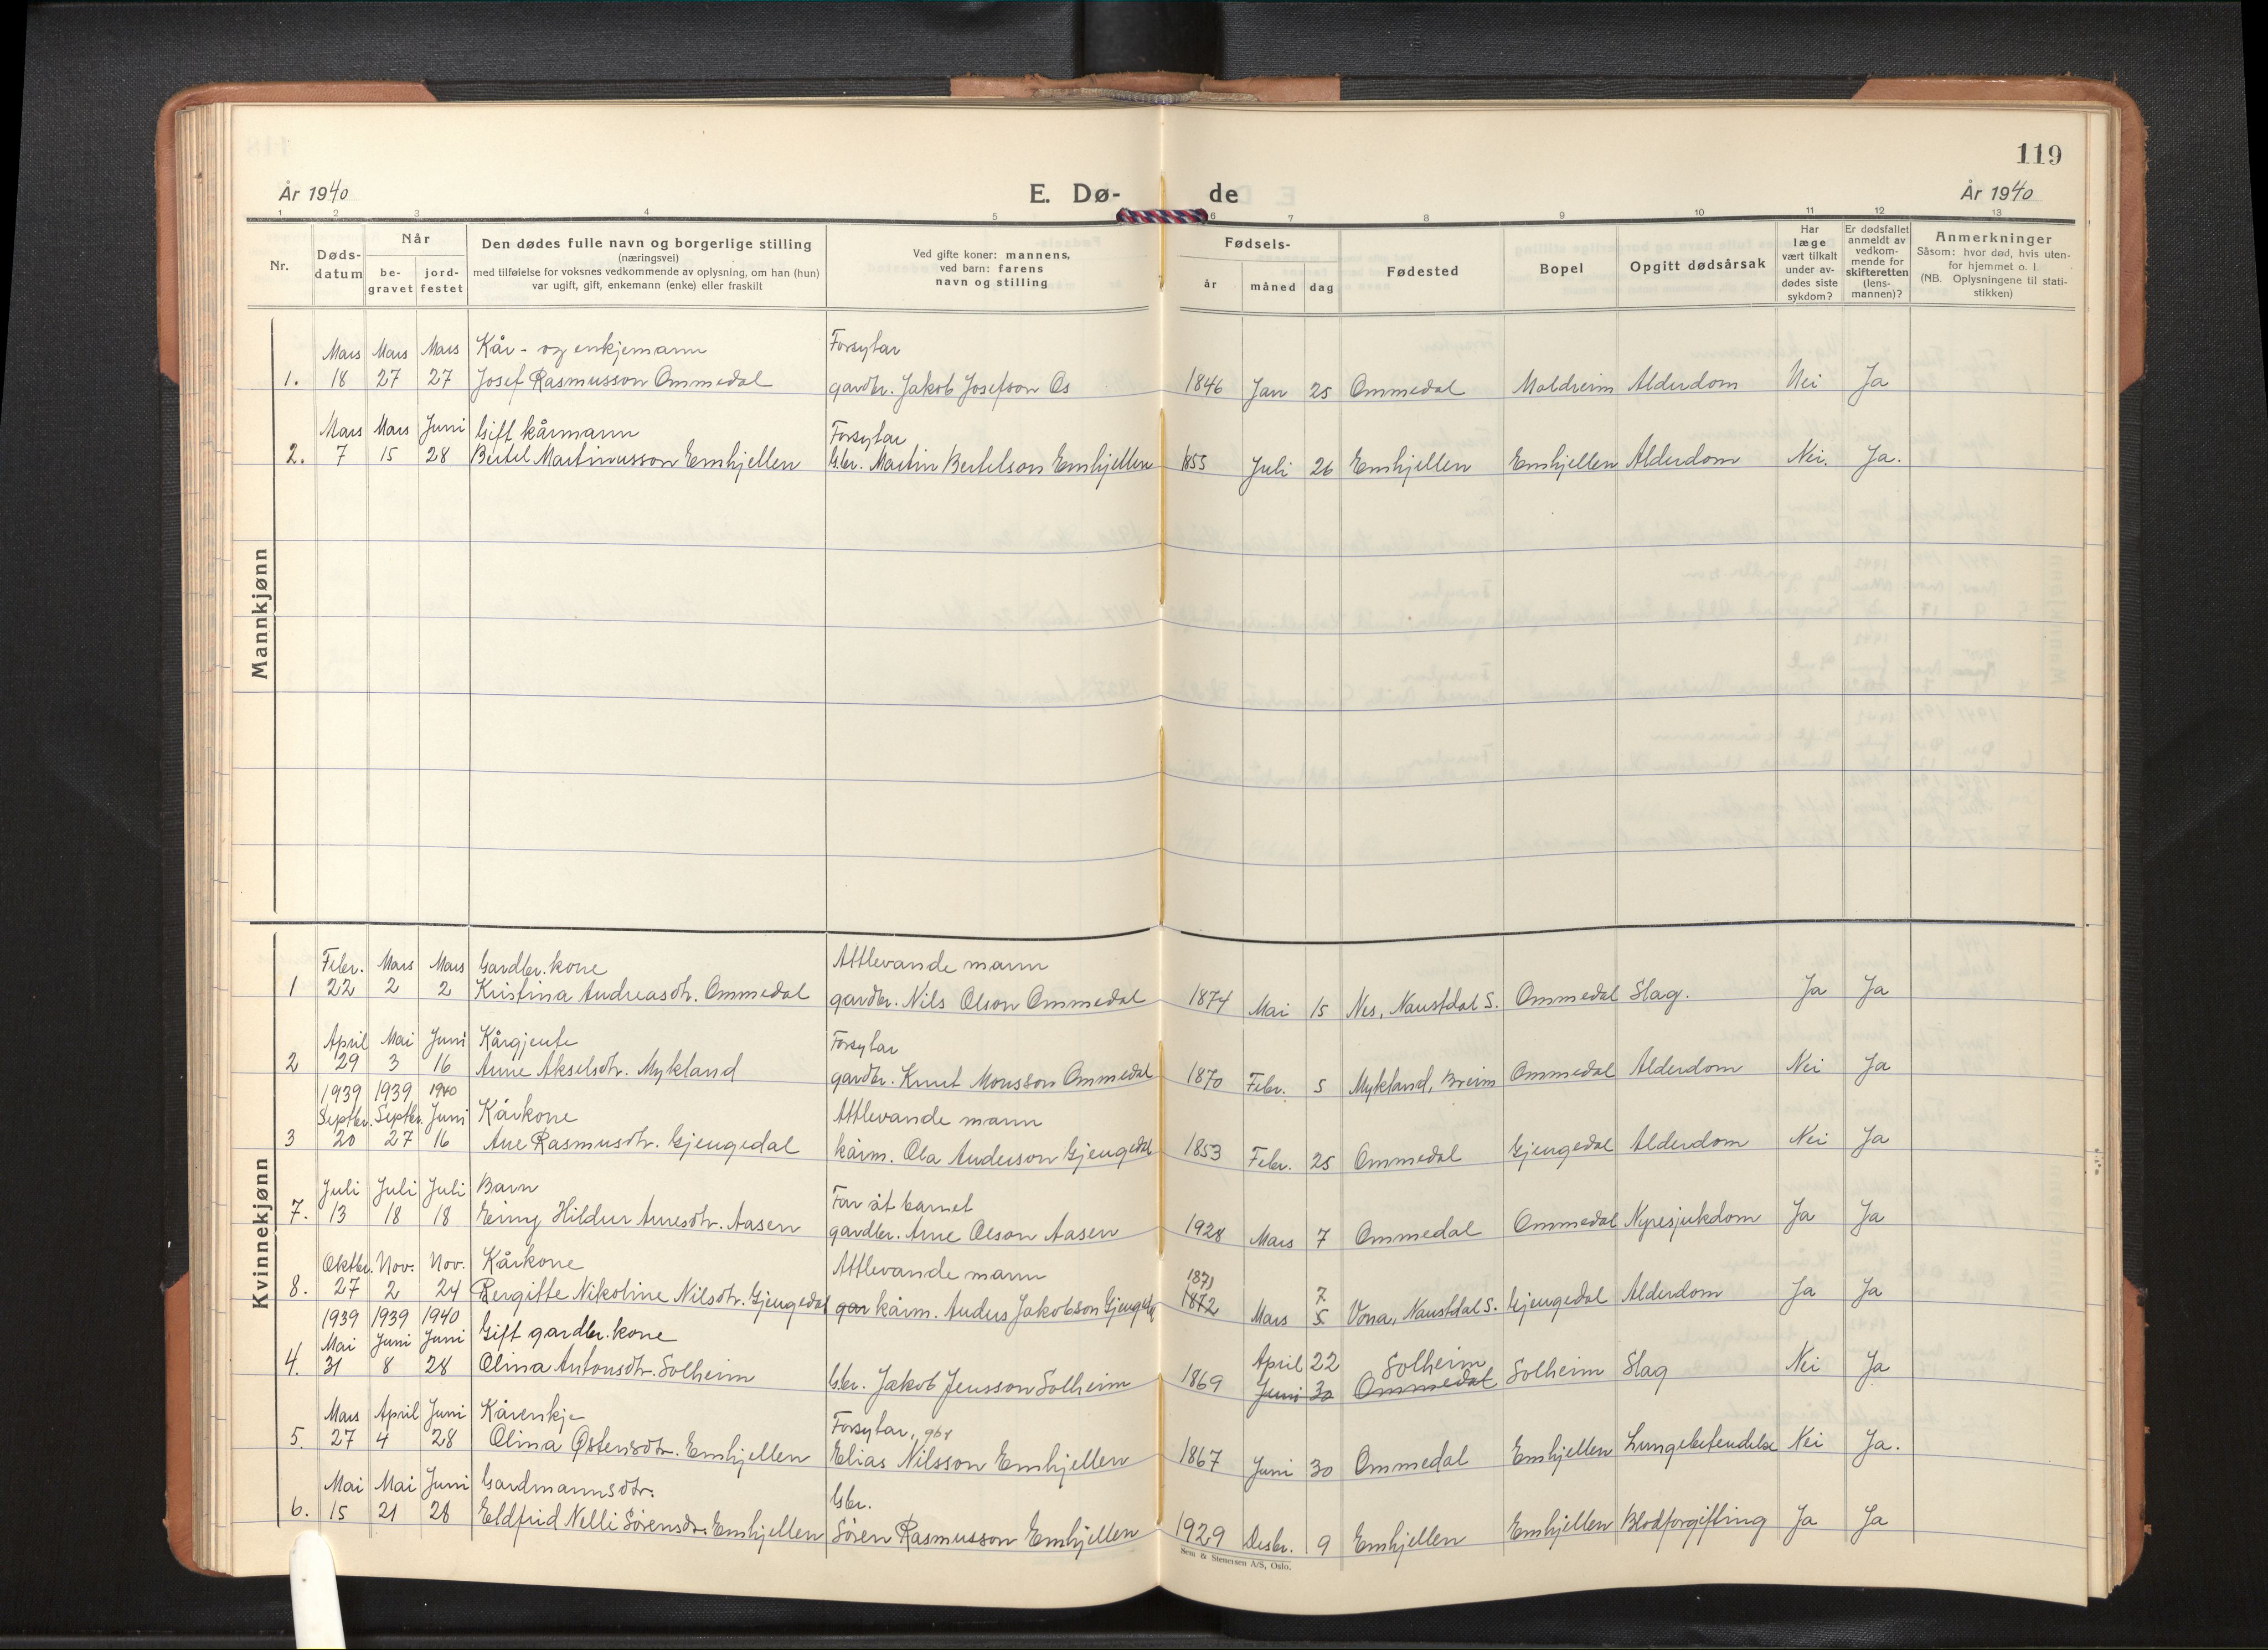 119
År 1940
E. Dø-
de
År 1940
1 2 3 4 5 6 7 8 9 10 11 12 13
Nr.
Døds-
datum
Når
be-
gravet
jord-
festet
Den dødes fulle navn og borgerlige stilling
(næringsvei)
med tilføielse for voksnes vedkommende av oplysning, om han (hun)
var ugift, gift, enkemann (enke) eller fraskilt
Ved gifte koner: mannens,
ved barn: farens
navn og stilling
Fødsels-
år
måned
dag
Fødested
Bopel
Opgitt dødsårsak
Har
læge
vært tilkalt
under av-
dødes siste
sykdom?
Er dødsfallet
anmeldt av
vedkom-
mende for
skifteretten
(lens-
mannen)?
Anmerkninger
Såsom: hvor død, hvis uten-
for hjemmet o. l.
(NB. Oplysningene til stati-
stikken)
Mannkjønn
Mars Mars Mars Kår- og enkjemann Forsytar
1. 18 27 27 Josef Rasmusson Ommedal gardbr. Jakob Josefson Os 1846 Jan 25 Ommedal Moldreim Alderdom Nei Ja
Mars Mars Juni Gift kårmann Forsytar
2. 7 15 28 Bertel Martinusson Emhjellen Gbr. Martin Bertelson Emhjellen 1855 Juli 26 Emhjellen Emhjellen Alderdom Nei. Ja.
Kvinnekjønn
Febr. Mars Mars Gardbr. kone Attlevande mann
1 22 2 2 Kristina Andreasdtr. Ommedal gardbr. Nils Olson Ommedal 1874 Mai 15 Nes, Naustdal S. Ommedal Slag. Ja Ja
April Mai Juni Kårgjente Forsytar
2 29 3 16 Anne Akselsdtr. Mykland gardbr. Knut Monsson Ommedal 1870 Febr. 5 Mykland, Breim Ommedal Alderdom Nei Ja
1939 1939 1940
Septbr. Septbr. Juni Kårkone Attlevande mann
3 20 27 16 Ane Rasmusdtr. Gjengedal kårm. Ola Anderson Gjengedal 1853 Febr. 25 Ommedal Gjengedal Alderdom Nei Ja
Juli Juli Juli Barn Far åt barnet
7. 13 18 18 Einy Hildur Arnesdtr. Aasen gardbr. Arne Olson Aasen 1928 Mars 7 Ommedal Ommedal Nyresjukdom Ja Ja
Oktbr. Nov. Nov. Kårkone Attlevande mann 1871 7
8. 27 2 24 Bergitte Nikoline Nilsdtr. Gjengedal gar kårm. Anders Jakobson Gjengedal 1872 Mars 5 Vona, Naustdal S. Gjengedal Alderdom Ja Ja
1939 1939 1940
Mai Juni Juni Gift gardbr. kone April 22 Solheim
4. 31 8 28 Olina Antonsdtr. Solheim Gbr. Jakob Jensson Solheim 1869 Juni 30 Ommedal Solheim Slag Nei Ja
Mars April Juni Kårenkje Forsytar, gbr
5. 27 4 28 Olina Østensdtr. Emhjellen Elias Nilsson Emhjellen 1867 Juni 30 Ommedal Emhjellen Lungebetendelse Nei Ja.
Mai Mai Juni Gardmannsdtr. Gbr.
6. 15 21 28 Eldfrid Nelli Sørensdtr. Emhjellen Søren Rasmusson Emhjellen 1929 Desbr. 9 Emhjellen Emhjellen Blodforgifting Ja Ja
Sem & Stenersen A/S, Oslo.